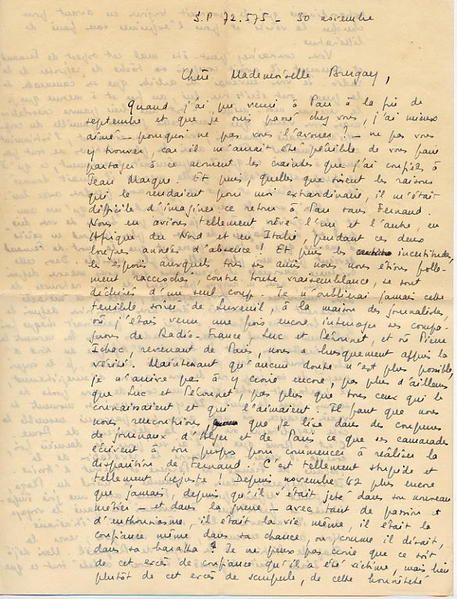 S.P 72.575 - 30 novembre
Chère Mademoiselle Brugay,
Quand j'ai pu venir à Paris à la fin de
septembre et que je suis passé chez vous, j'ai mieux
aimé - pourquoi ne pas vous l'avouer? - ne pas vous
y trouver, car il m'aurait été pénible de vous faire
partager à ce moment les craintes que j'ai confiées à
Jean Marque. Et puis, quelles que soient les raisons
qui le rendaient pour moi extraordinaire, il m'était
difficile d'imaginer ce retour à Paris sans Fernand.
Nous en avions tellement rêvé l'un et l'autre, en
Afrique du Nord et en Italie, pendant ces deux
longues années d'absence! Et puis les incertitudes,
les espoirs auxquels tous ses amis nous nous étions folle-
ment raccrochés contre toute vraisemblance, se sont
déchirés d'un seul coup. Je n'oublierai jamais cette
terrible soirée de Luxeuil, à la maison des journalistes,
où j'étais venu une fois encore interroger ses compa-
gnons de Radio-France, Luc et Péronnet, et où Pierre
Ichac, revenant de Paris, nous a brusquement appris la
vérité. Maintenant qu'aucun doute n'est plus possible,
je n'arrive pas à y croire encore, pas plus d'ailleurs
que Luc et Péronnet, pas plus que tous ceux qui le
connaissaient et qui l'aimaient. Il faut que nous
nous rencontrions, que je lise dans les coupures
de journaux d'Alger et de Paris ce que ses camarades
écrivent à son propos pour commencer à réaliser la
disparition de Fernand. C'est tellement stupide et
tellement injuste! Depuis novembre 42 plus encore
que jamais, depuis qu'il s'était jeté dans son nouveau
métier - et dans la guerre - avec tant de passion et
d'enthousiasme, il était la vie même, il était la
confiance même dans sa chance, ou comme il disait,
dans sa baraka! Je ne peux pas croire que ce soit
de cet excès de confiance qu'il a été victime, mais bien
plutôt de cet excès de scrupule, de cette honnêteté